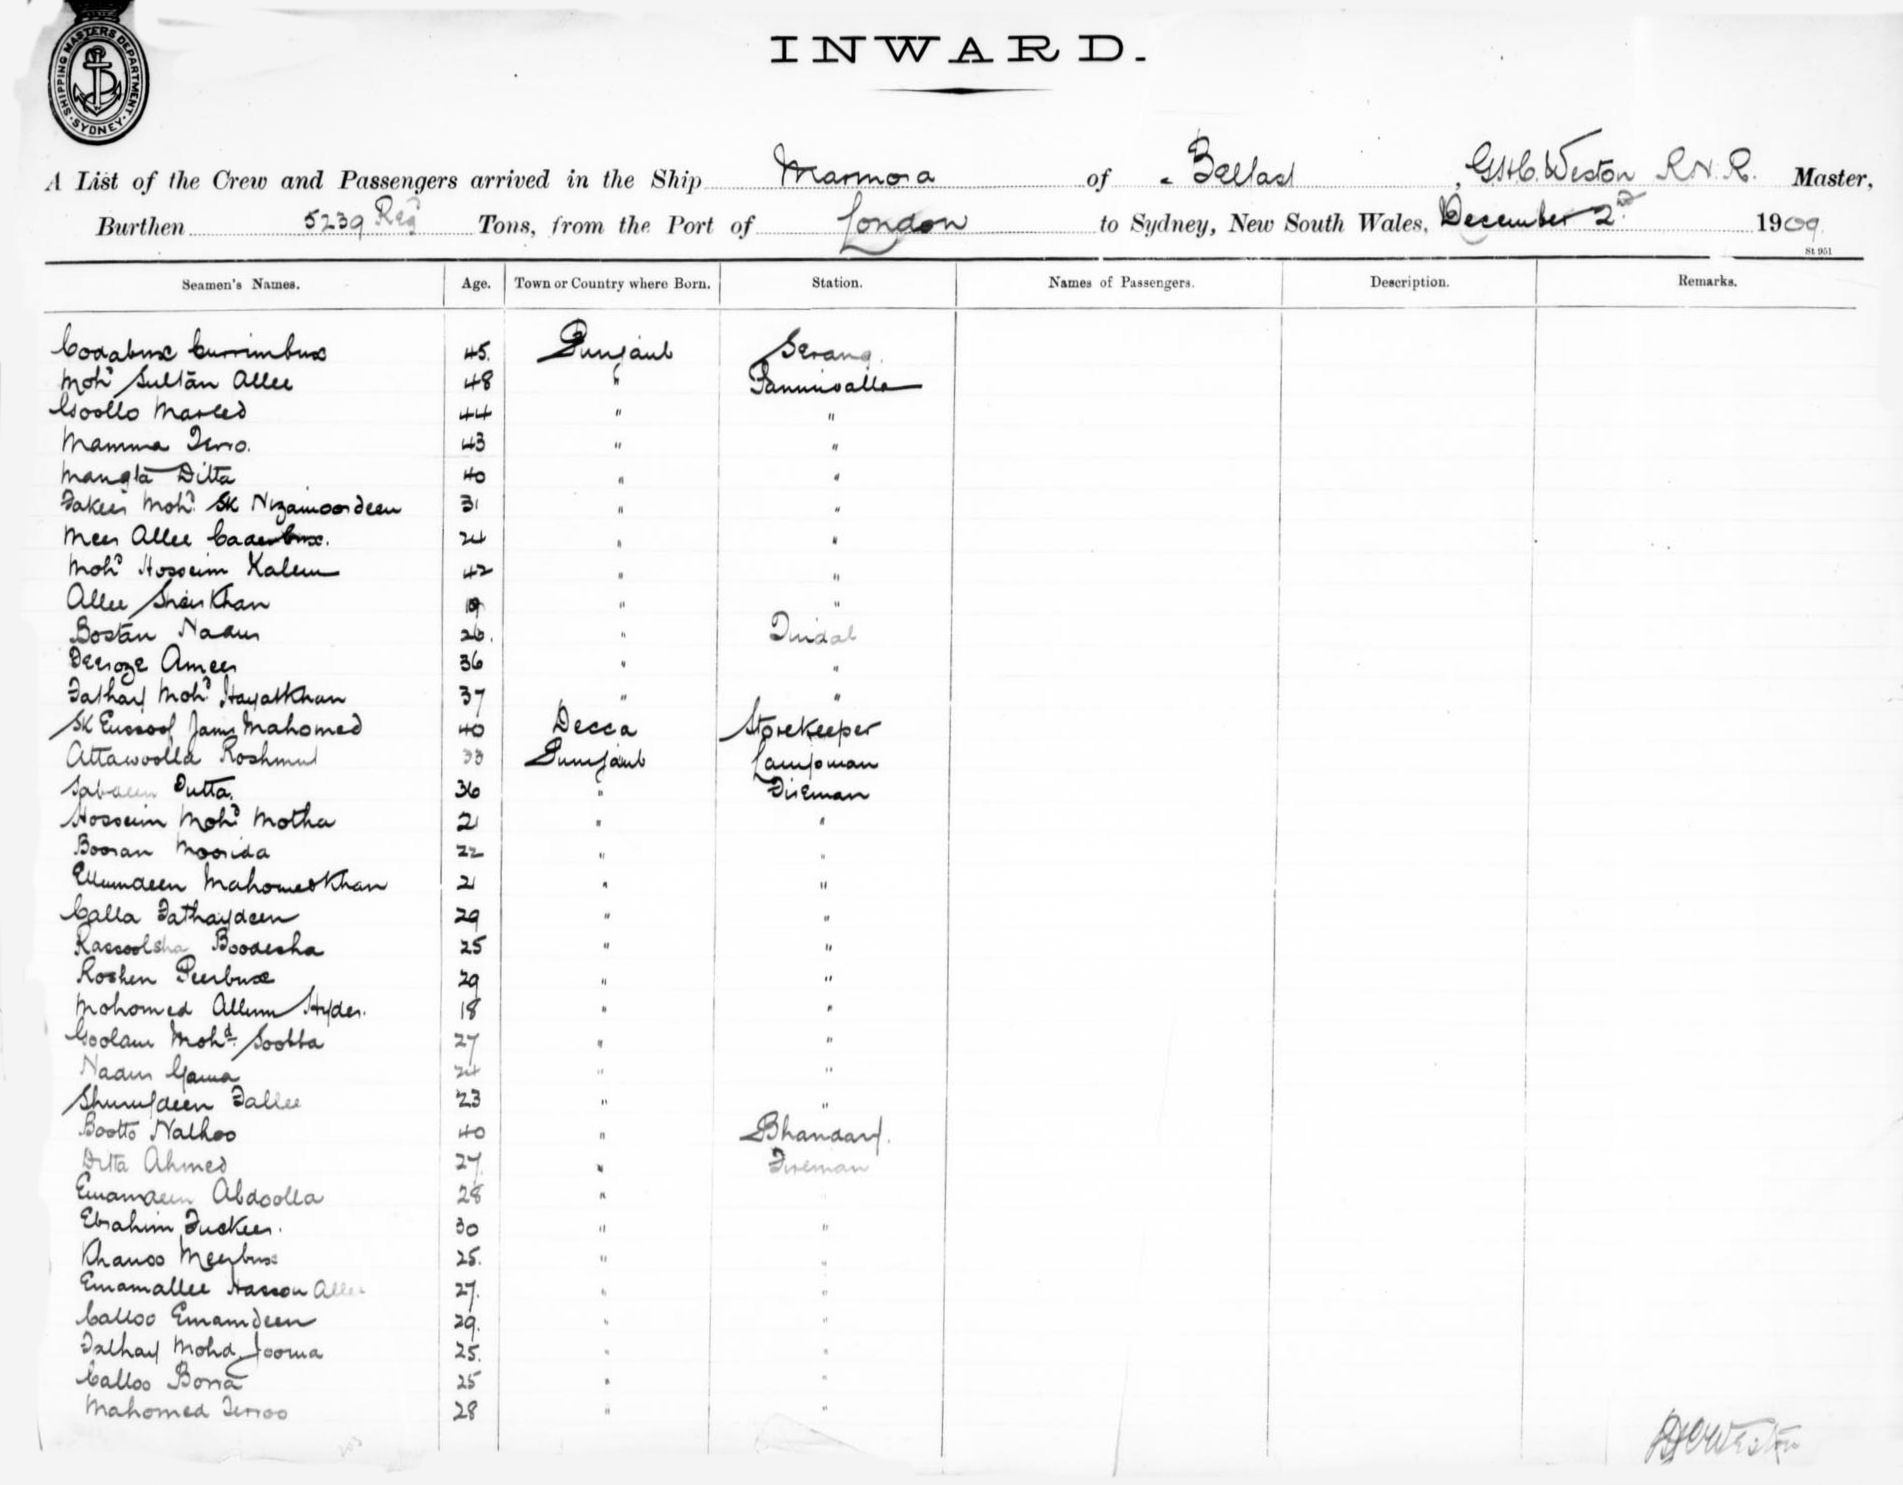 SHIPPING MASTERS DEPARTMENT
SYDNEY
INWARD.
A List of the Crew and Passengers arrived in the Ship Marmora of Belfast, G.H.C. Weston R.N.R. Master,
Burthen 5239 Reg Tons, from the Port of London to Sydney, New South Wales, December 2nd 1909
St 951
Seamen's Names. Age. Town or Country where Born. Station. Names of Passengers. Description. Remarks.
Codabux Currimbux 45. Punjaub Serang.
Mohd Sultan Allee 48 " Pannivalla
Goollo 44 " "
Mamma 43 " "
Mangta Ditta 40 " "
Fakeer Mohd SK Nizamoordeen 31 " "
Meer Allee Caderbux. 24 " "
Mohd Hossein Kalem 42 " "
Allee Sheirkhan 19 " "
Bostan Nadur 26. " Tindal
Feeroze Ameer 36 " "
Fathay Mohd Hayatkhan 37 " "
SK Eussoof Jam Mahomed 40 Decca Storekeeper
Attawoolla 33 Punjaub Lampman
Ditta. 36 " Fireman
Hossein Mohd Motha 21 " "
Booran Moorida 22 " "
Ellumdeen Mahomedkhan 21 " "
Calla Fathaydeen 29 " "
Rassoolsha Boodesha 25 " "
Roshen Peerbux 29 " "
Mohomed Allum Hyder. 18 " "
Goolam Mohd. Soobba 27 " "
Nadur Gama 24 " "
Shurufdeen Fallee 23 " "
Bootto Nathoo 40 " Bhandary.
Ditta Ahmed 27. " Fireman
Emamdeen Abdoolla 28 "
Ebrahim Fuckeer. 30 " "
Khanoo Meerbux 25. " "
Emamallee Hasson Allee 27. " "
Calloo Emamdeen 29. " "
Fathay Mohd. Jooma 25. " "
Calloo Borra 25 " "
Mahomed 28 " "
G.H.C. Weston